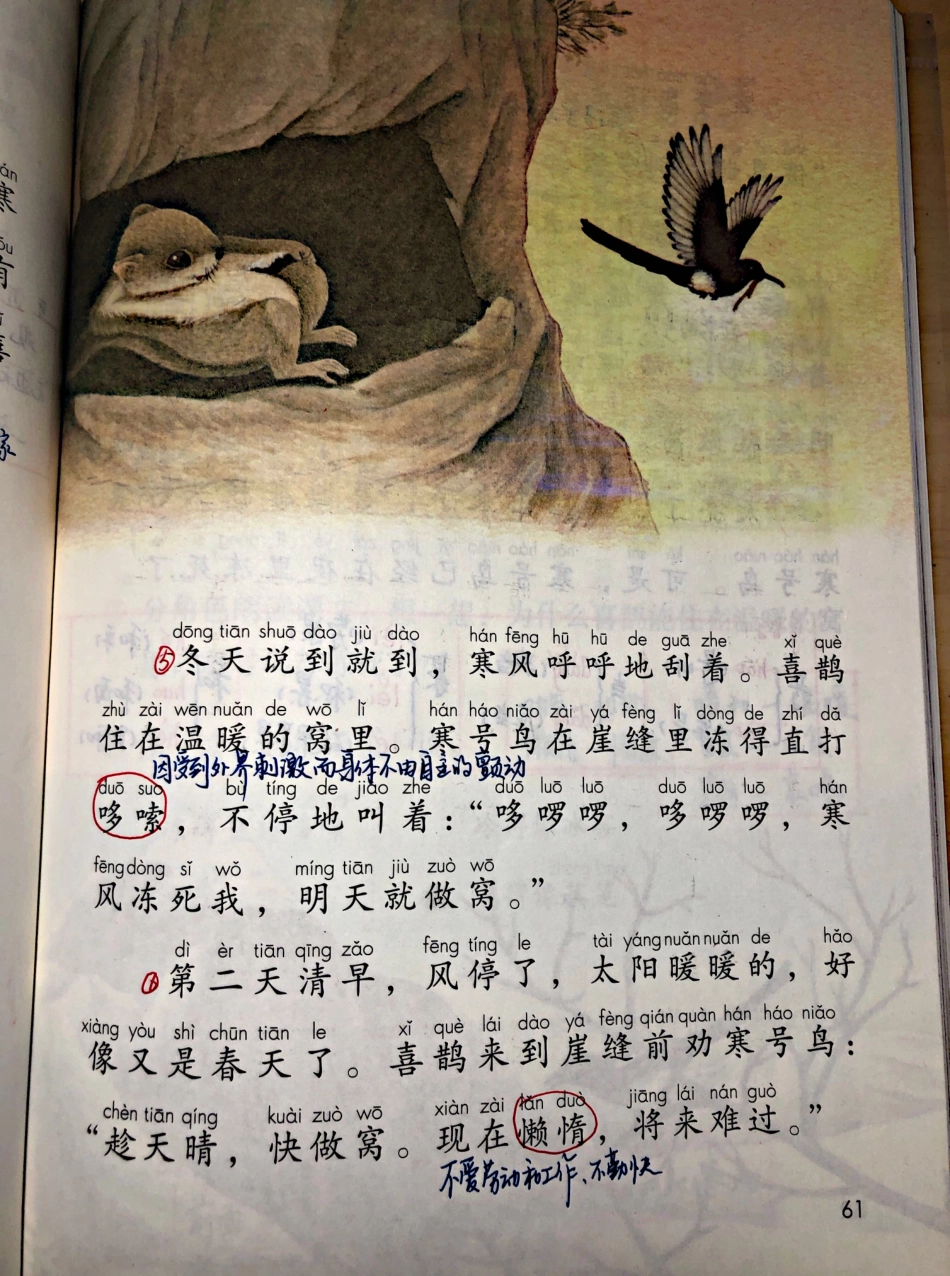 dōng tiān shuō dào jiù dào hán fēng hū hū de guā zhe xǐ què
⑤冬天说到就到，寒风呼呼地刮着。喜鹊
zhù zài wēn nuǎn de wō lǐ hán háo niǎo zài yá fèng lǐ dòng de zhí dǎ
住在温暖的窝里。寒号鸟在崖缝里冻得直打
因受到外界刺激而身体不由自主的颤动
duō suo bù tíng de jiào zhe duō luō luō duō luō luō hán
哆嗦，不停地叫着：“哆啰啰，哆啰啰，寒
fēng dòng sǐ wǒ míng tiān jiù zuò wō
风冻死我，明天就做窝。”
dì èr tiān qīng zǎo fēng tíng le tài yáng nuǎn nuǎn de hǎo
⑥第二天清早，风停了，太阳暖暖的，好
xiàng yòu shì chūn tiān le xǐ què lái dào yá fèng qián quàn hán háo niǎo
像又是春天了。喜鹊来到崖缝前劝寒号鸟：
chèn tiān qíng kuài zuò wō xiàn zài lǎn duò jiāng lái nán guò
“趁天晴，快做窝。现在懒惰，将来难过。”
不爱劳动和工作、不勤快
61